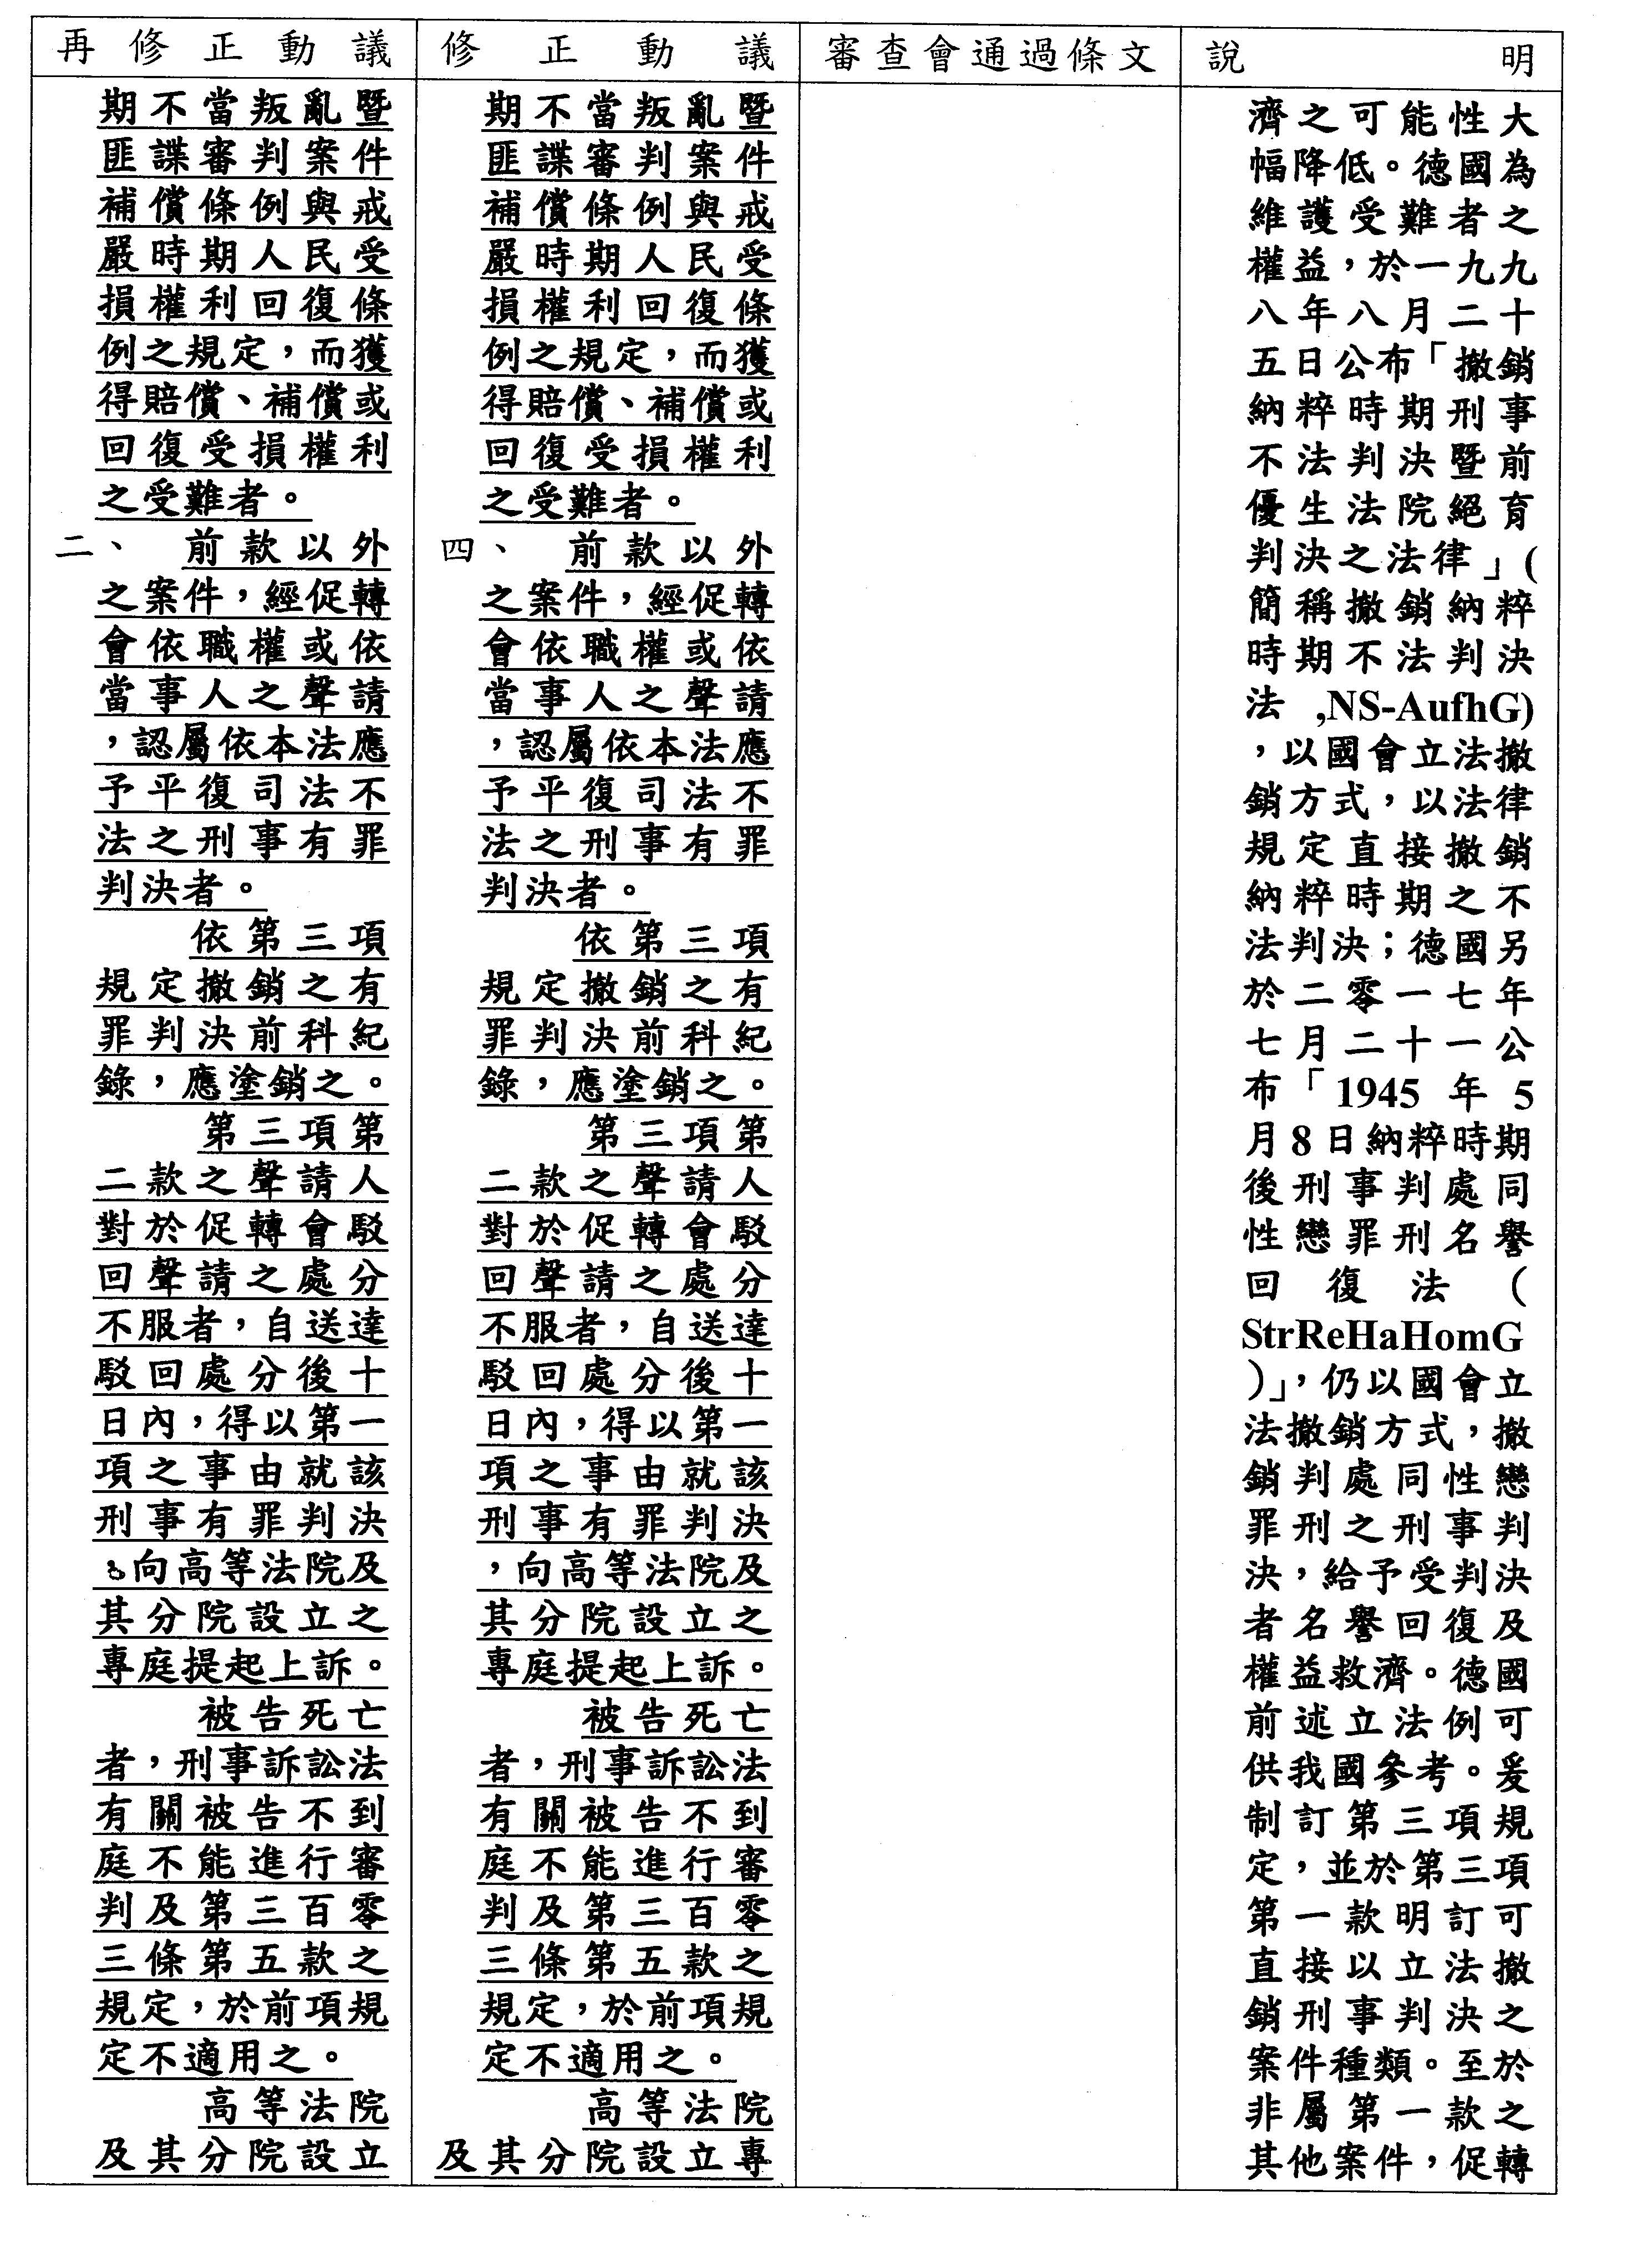 再修正動議
期不當叛亂暨
匪諜審判案件
補償條例與戒
嚴時期人民受
損權利回復條
例之規定，而獲
得賠償、補償或
回復受損權利
之受難者。
二、 前款以外
之案件，經促轉
會依職權或依
當事人之聲請
，認屬依本法應
予平復司法不
法之刑事有罪
判決者。
依第三項
規定撤銷之有
罪判決前科紀
錄，應塗銷之。
第三項第
二款之聲請人
對於促轉會駁
回聲請之處分
不服者，自送達
駁回處分後十
日內，得以第一
項之事由就該
刑事有罪判決
，向高等法院及
其分院設立之
專庭提起上訴。
被告死亡
者，刑事訴訟法
有關被告不到
庭不能進行審
判及第三百零
三條第五款之
規定，於前項規
定不適用之。
高等法院
及其分院設立
修正動議
期不當叛亂暨
匪諜審判案件
補償條例與戒
嚴時期人民受
損權利回復條
例之規定，而獲
得賠償、補償或
回復受損權利
之受難者。
四、 前款以外
之案件，經促轉
會依職權或依
當事人之聲請
，認屬依本法應
予平復司法不
法之刑事有罪
判決者。
依第三項
規定撤銷之有
罪判決前科紀
錄，應塗銷之。
第三項第
二款之聲請人
對於促轉會駁
回聲請之處分
不服者，自送達
駁回處分後十
日內，得以第一
項之事由就該
刑事有罪判決
，向高等法院及
其分院設立之
專庭提起上訴。
被告死亡
者，刑事訴訟法
有關被告不到
庭不能進行審
判及第三百零
三條第五款之
規定，於前項規
定不適用之。
高等法院
及其分院設立專
審查會通過條文
說明
濟之可能性大
幅降低。德國為
維護受難者之
權益，於一九九
八年八月二十
五日公布「撤銷
納粹時期刑事
不法判決暨前
優生法院絕育
判決之法律」(
簡稱撤銷納粹
時期不法判決
法 ,NS-AufhG)
，以國會立法撤
銷方式，以法律
規定直接撤銷
納粹時期之不
法判決；德國另
於二零一七年
七月二十一公
布「1945 年 5
月 8 日納粹時期
後刑事判處同
性戀罪刑名譽
回復法（
StrReHaHomG
）」，仍以國會立
法撤銷方式，撤
銷判處同性戀
罪刑之刑事判
決，給予受判決
者名譽回復及
權益救濟。德國
前述立法例可
供我國參考。爰
制訂第三項規
定，並於第三項
第一款明訂可
直接以立法撤
銷刑事判決之
案件種類。至於
非屬第一款之
其他案件，促轉